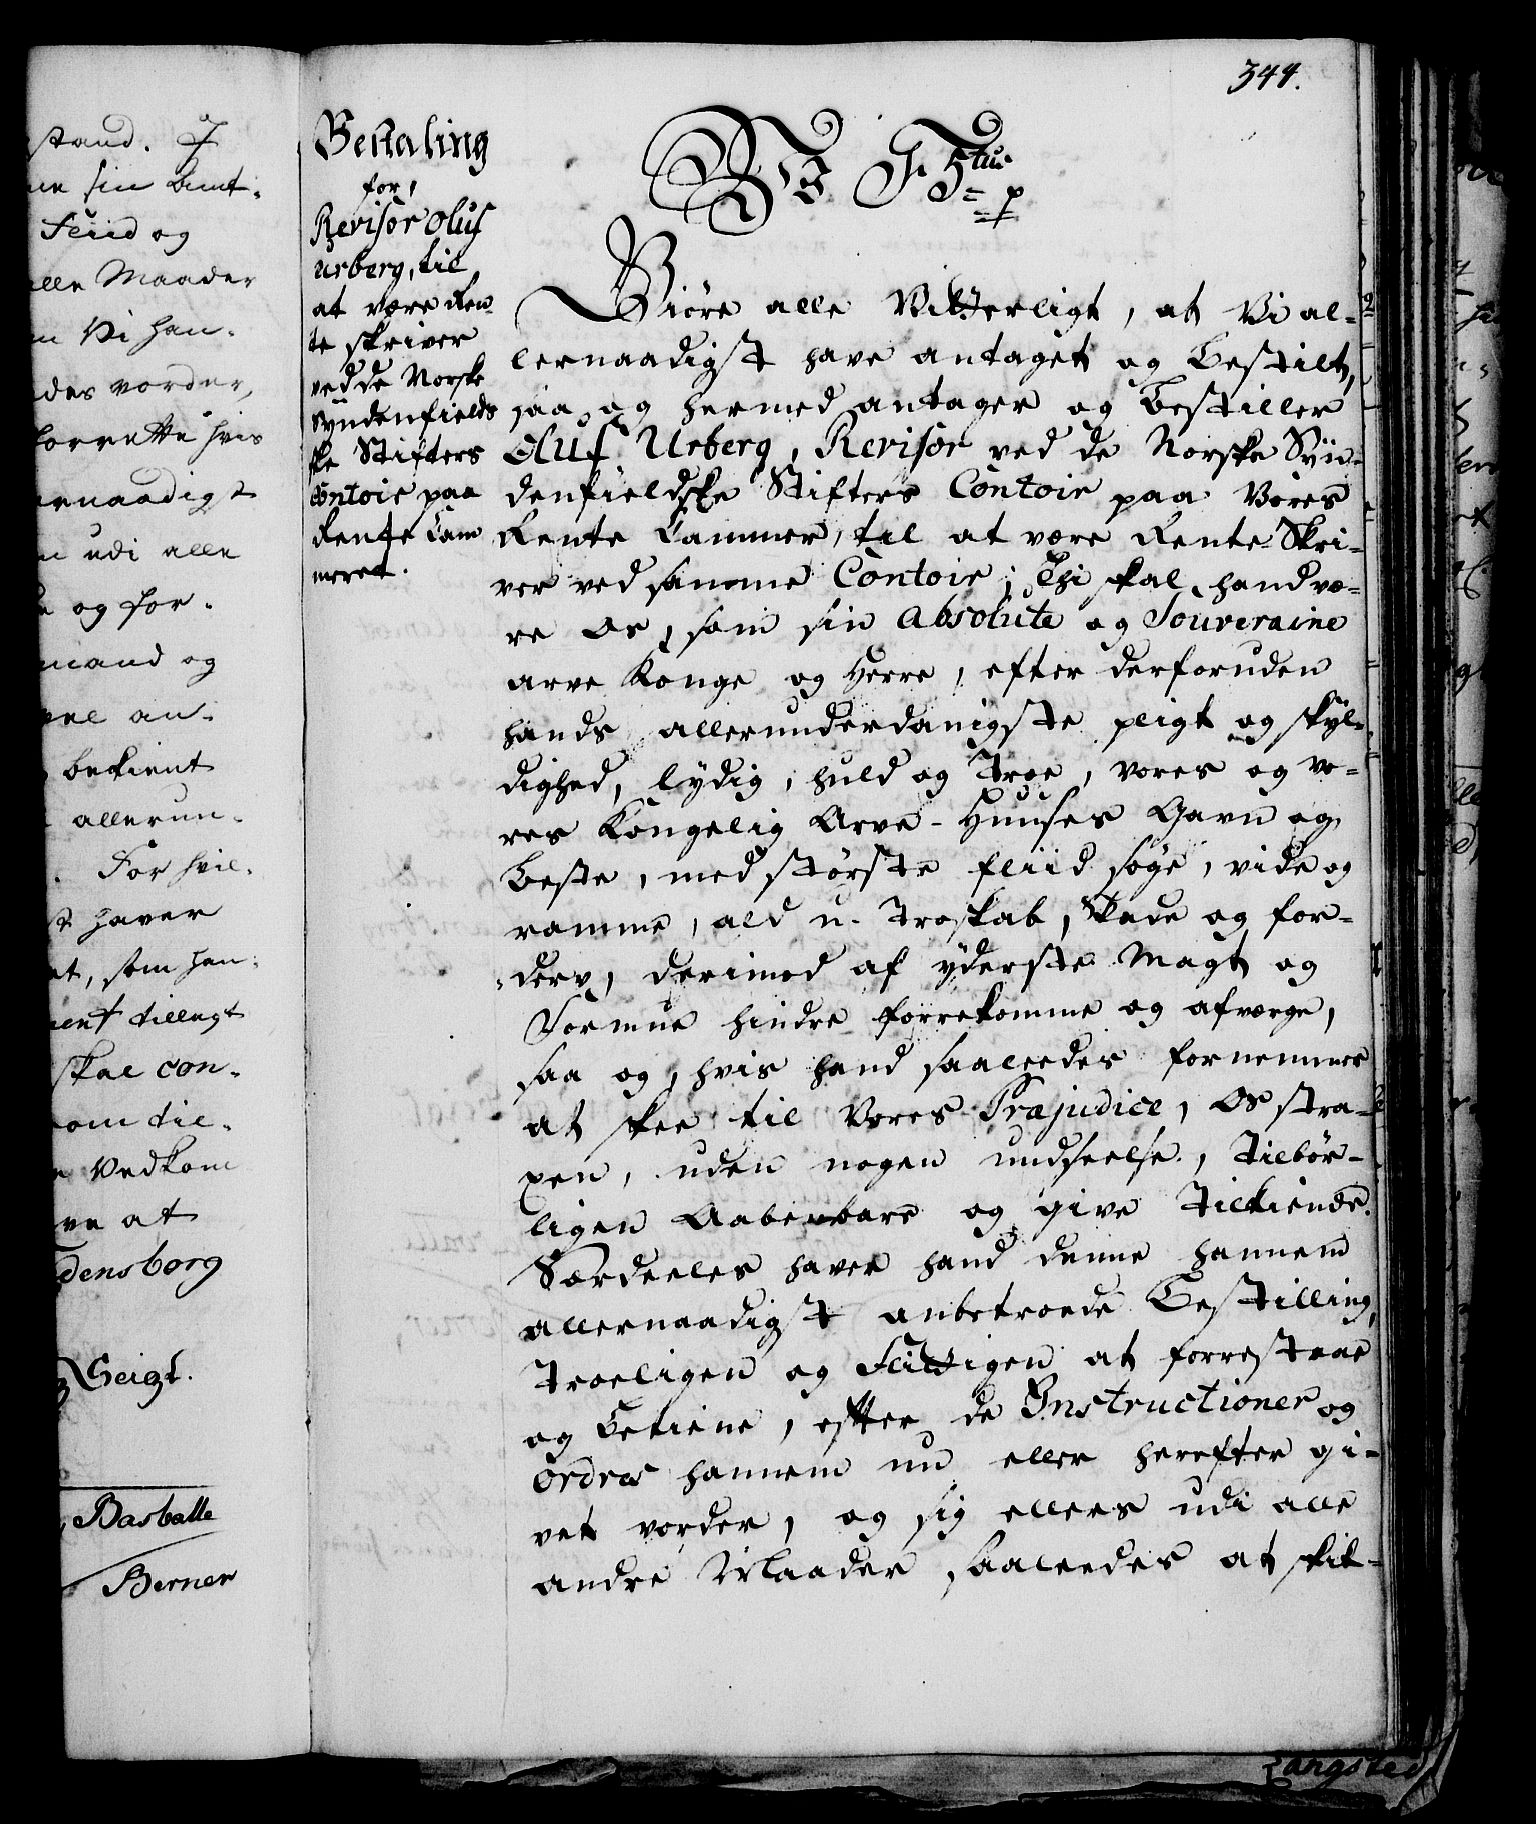 stand. J
ne sin Amt.
Fliid og
alle Maader
m Vi han.
des vorder,
forrette hvis
ernaadigst
n udi alle
og for.
mand og
vel an.
bekient
allerun.
For hvil.
st haver
et, som han.
ment tillagt
skal con.
om til.
e Vedkom
ve at
densborg
Geist.
Basballe
Berner
344.
Bestaling
for,
Revisor Oluf
Urberg, til
at være Ren
te skriver
ved de Norske
Syndenfields
ke Stifters
Contoir paa
Rente Cam
meret.
W F 5tus p
Giöre alle Vitterligt, at Vi al-
lernaadigst have antaget og Bestilt,
saa og hermed antager og Bestiller
Oluf Urberg, Revisor ved de Norske Syn-
denfieldske Stifters Contoir paa Vores
Rente Cammer, til at være Rente-Skri-
ver ved samme Contoir; Thi skal hand væ-
re Os, som sin Absolute og Souveraine
Arve Konge og Herre, efter derforuden
hands allerunderdanigste pligt og skyl-
dighed, lydig, huld og Troe, vores og vo-
res Kongelig Arve-Huuses Gavn og
Beste, med störste fliid söge, vide og
ramme, ald u-Troskab, Skade og for-
derv, derimod af yderste Magt og
Formue hindre forrekomme og afværge,
saa og, hvis hand saaleedes fornemmer
at skee til Vores Præjudice, Os stra-
xen, uden nogen undseelse, Tilbör-
ligen Aabenbare og give Tilkiende.
Særdeeles haver hand denne hannem
allernaadigst anbetroede Bestilling,
Troeligen og Flittigen at forrestaae
og Betiene, efter de Instructioner og
Ordres hannem nu eller herefter gi-
vet vorder, og sig ellers udi alle
andre Maader saaleedes at skik-
Langsted